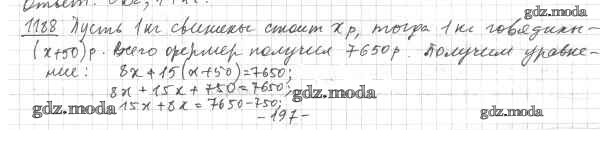 1188 Пусть 1 кг свинины стоит x р, тогда 1 кг говядины-
(x+50) р. Всего фермер получил 7650 р. Получим уравне-
ние: 8x+15(x+50)=7650;
8x+15x+750=7650;
gdz.moda
15x+8x=7650-750;
gdz.moda
gdz.moda
-197-